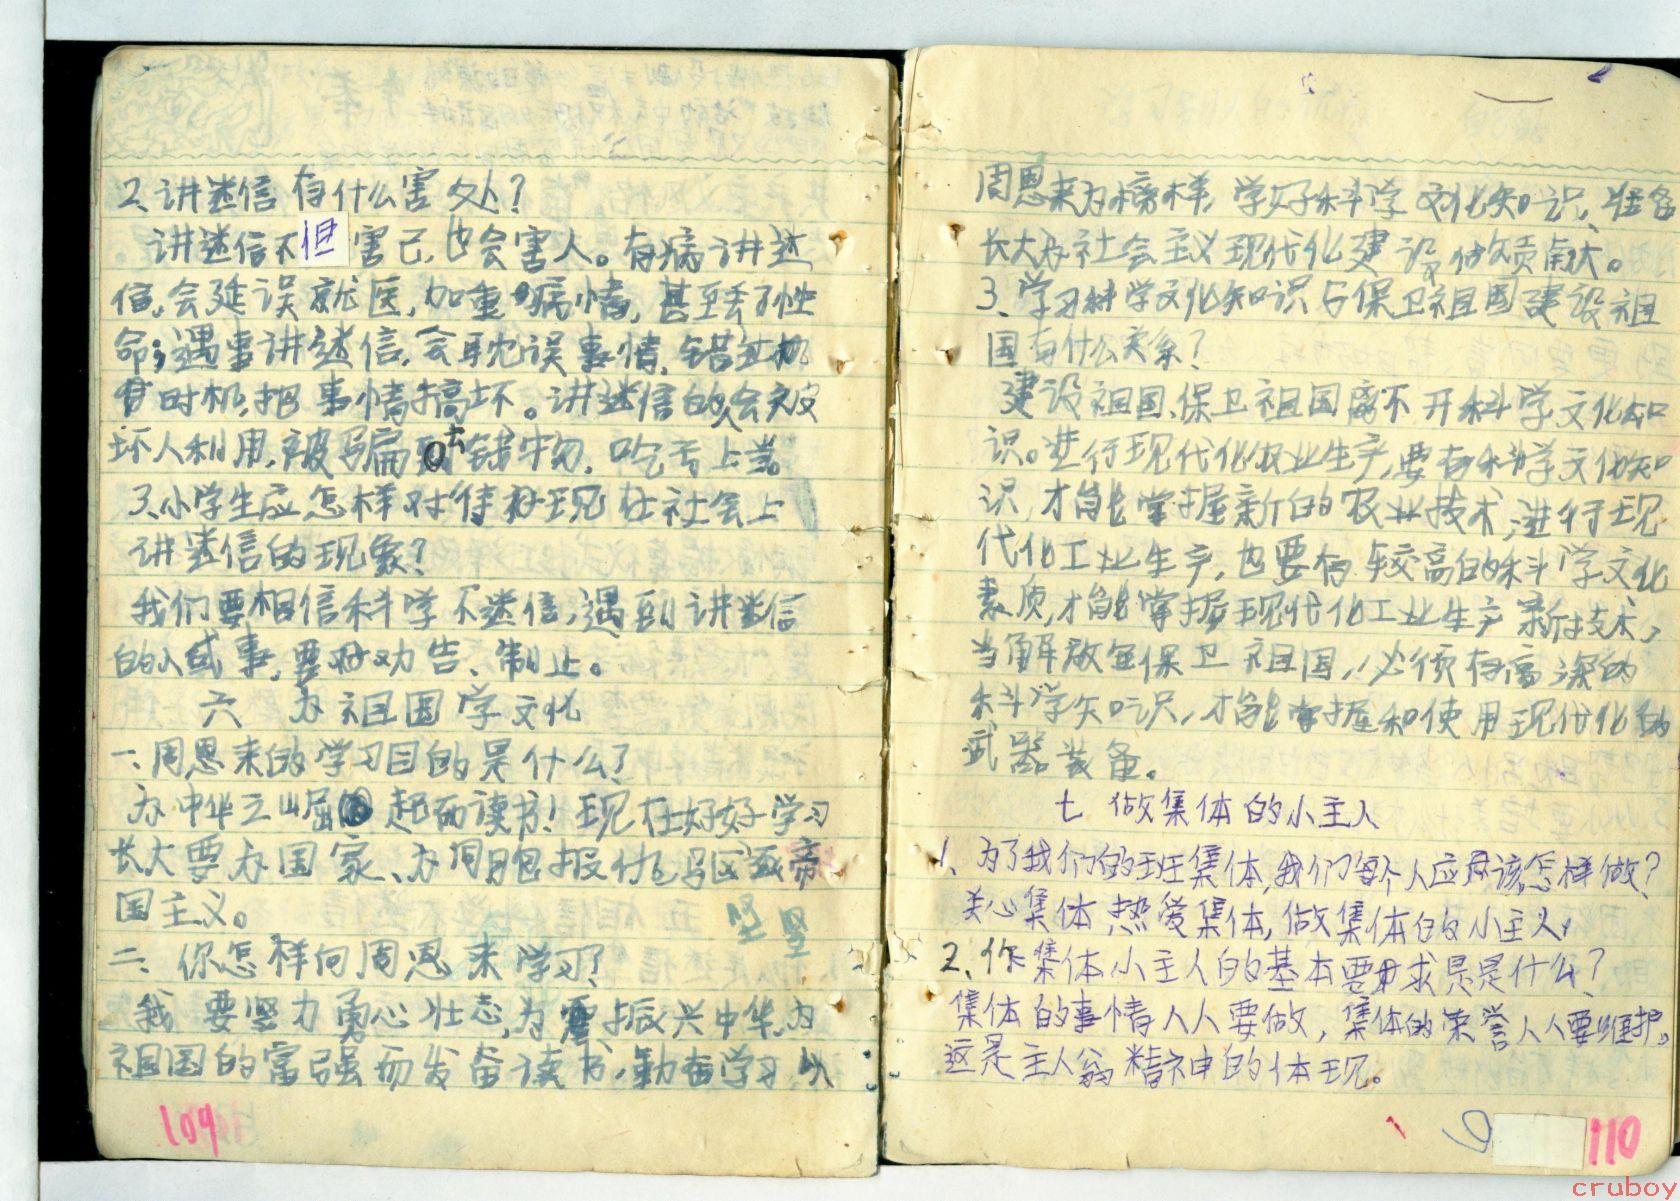 2、讲迷信有什么害处？
讲迷信不但害己，也会害人。有病讲迷
信，会延误就医，加重病情，甚至丢了性
命；遇事讲迷信，会耽误事情，错过
时机，把事情搞坏。讲迷信的人会被
坏人利用，被骗去钱物，吃亏上当。
3、小学生应怎样对待现在社会上
讲迷信的现象？
我们要相信科学不迷信，遇到讲迷信
的人或事，要劝告、制止。
六 为祖国学文化
一、周恩来的学习目的是什么？
为中华之崛起而读书！现在好好学习
长大要为国家、为同胞报仇，驱逐帝
国主义。
坚 坚
二、你怎样向周恩来学习？
我要坚力勇心壮志，为振兴中华，为
祖国的富强而发奋读书，勤奋学习，以
109
周恩来为榜样，学好科学文化知识，准备
长大为社会主义现代化建设做贡献。
3、学习科学文化知识与保卫祖国建设祖
国有什么关系？
建设祖国、保卫祖国离不开科学文化知
识。进行现代化农业生产，要有科学文化知
识，才能掌握新的农业技术；进行现
代化工业生产，也要有较高的科学文化
素质，才能掌握现代化工业生产新技术，
当解放军保卫祖国，必须有高深的
科学知识，才能掌握和使用现代化的
武器装备。
七 做集体的小主人
1、为了我们的班集体，我们每个人应该怎样做？
关心集体，热爱集体，做集体的小主人，
2、作集体小主人的基本要求是什么？
集体的事情人人要做，集体的荣誉人人要维护。
这是主人翁精神的体现。
110
cruboy